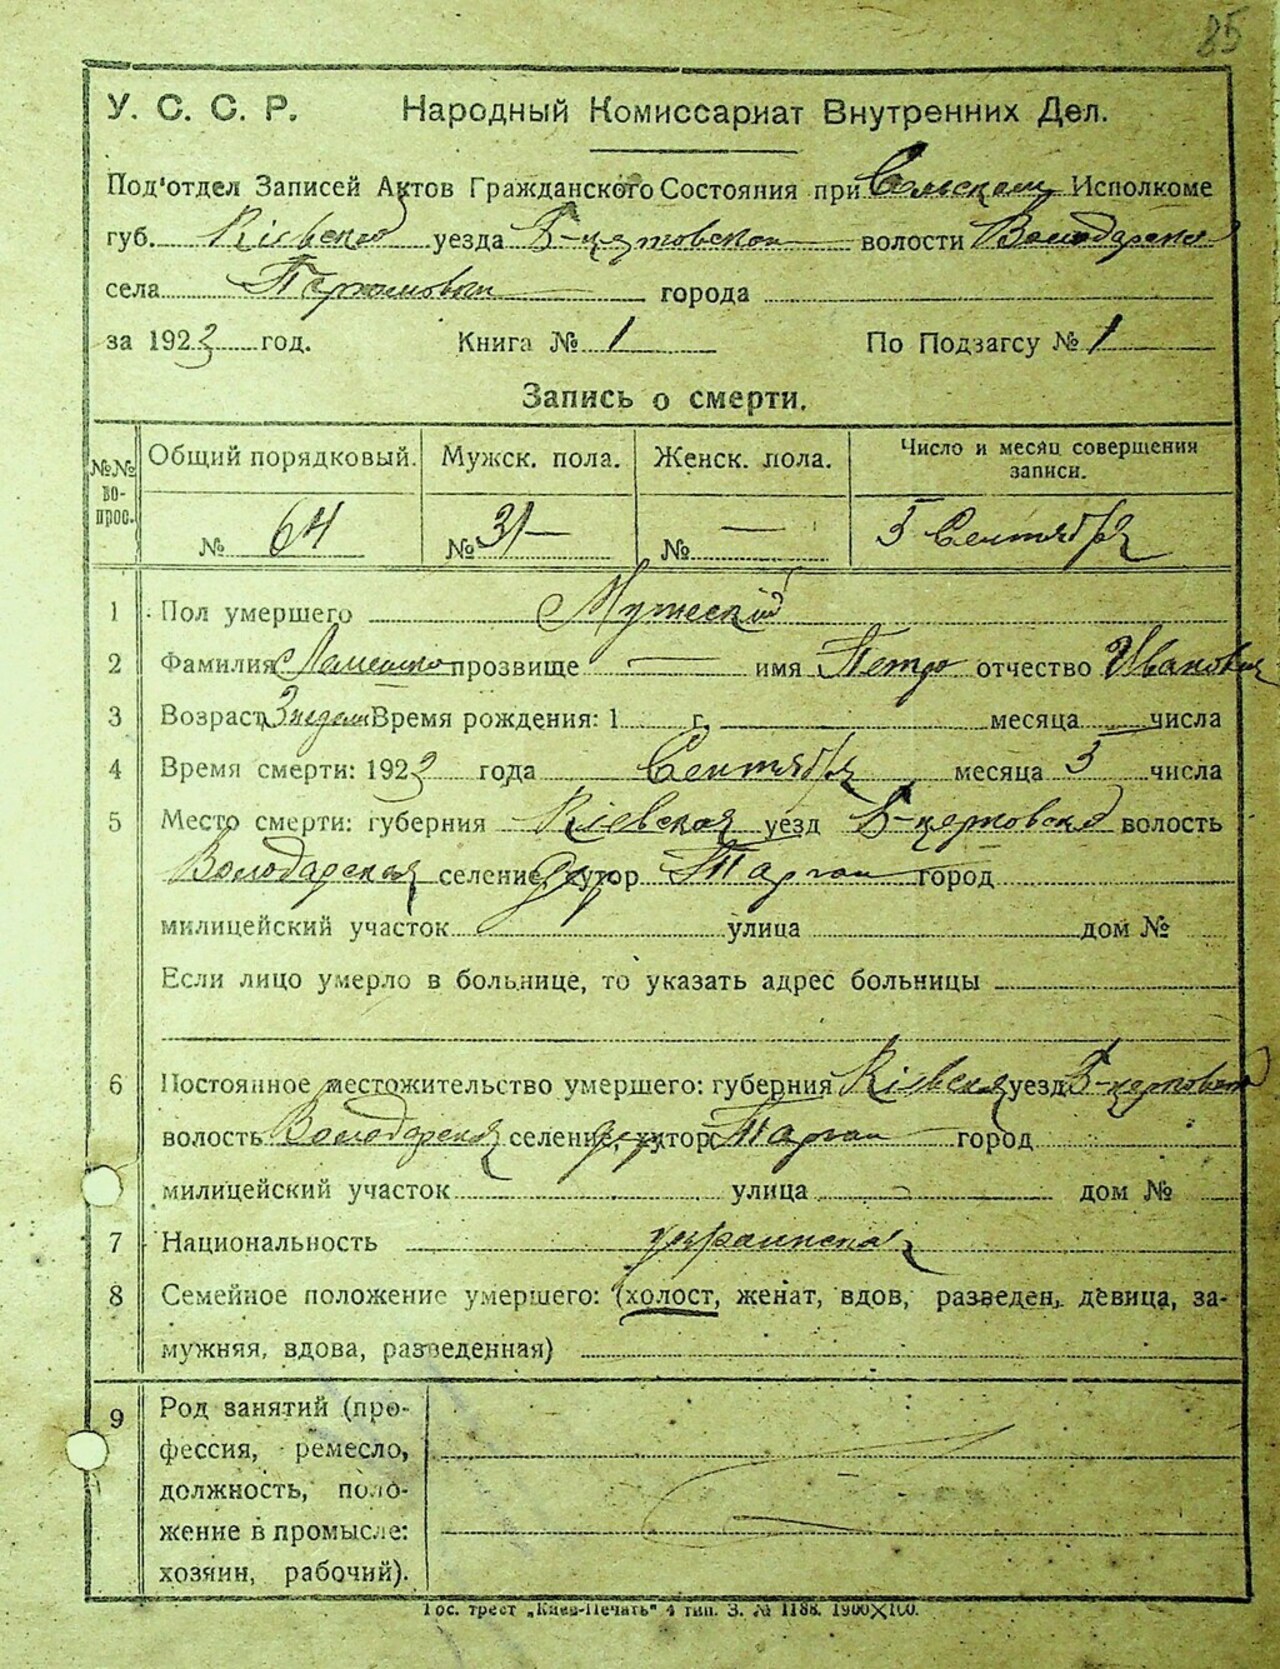 85
У. С. С. Р. Народный Комиссариат Внутренних Дел.
Под'отдел Записей Актов Гражданского Состояния при Сельском Исполкоме
губ. Кіевской уезда Б-церковской волости Володарской
села города
за 1923 год. Книга № 1 По Подзагсу № 1
Запись о смерти.
№№ вопрос. Общий порядковый. Мужск. пола. Женск. пола. Число и месяц совершения записи.
№ 64 № 31 — № — 5 Сентября
1 Пол умершего Мужеский
2 Фамилия прозвище — имя Петр отчество Иванович
3 Возраст 3 недели Время рождения: 1 г. месяца числа
4 Время смерти: 1923 года Сентября месяца 5 числа
5 Место смерти: губерния Кіевская уезд Б-церковской волость
Володарская селение, хутор Тарган город
милицейский участок улица дом №
Если лицо умерло в больнице, то указать адрес больницы
6 Постоянное местожительство умершего: губерния Кіевская уезд Б-церковской
волость Володарская селение, хутор Тарган город
милицейский участок улица дом №
7 Национальность украинская
8 Семейное положение умершего: (холост, женат, вдов, разведен, девица, за-
мужняя, вдова, разведенная)
9 Род занятий (про-
фессия, ремесло,
должность, поло-
жение в промысле:
хозяин, рабочий).
Гос. трест „Киев-Печать" 4 тип. З. № 1188. 1900×100.